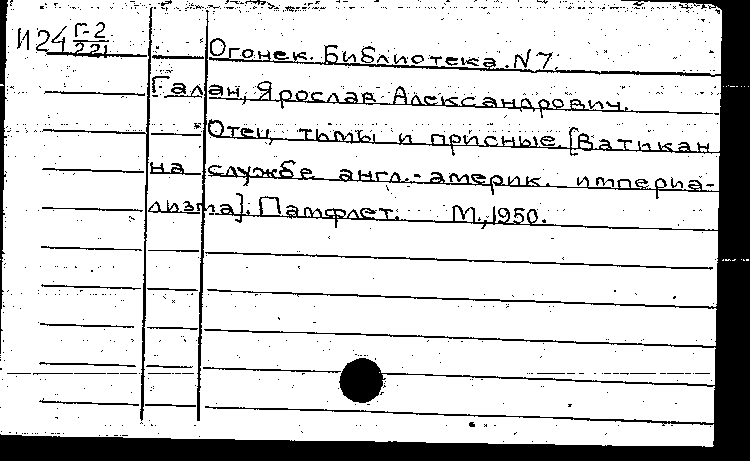 И24 Г-2/221
Огонек. Библиотека. N 7.
Галан, Ярослав Александрович.
Отец тьмы и присные [Ватикан
на службе англ.-америк. империа-
лизма]. Памфлет. М., 1950.